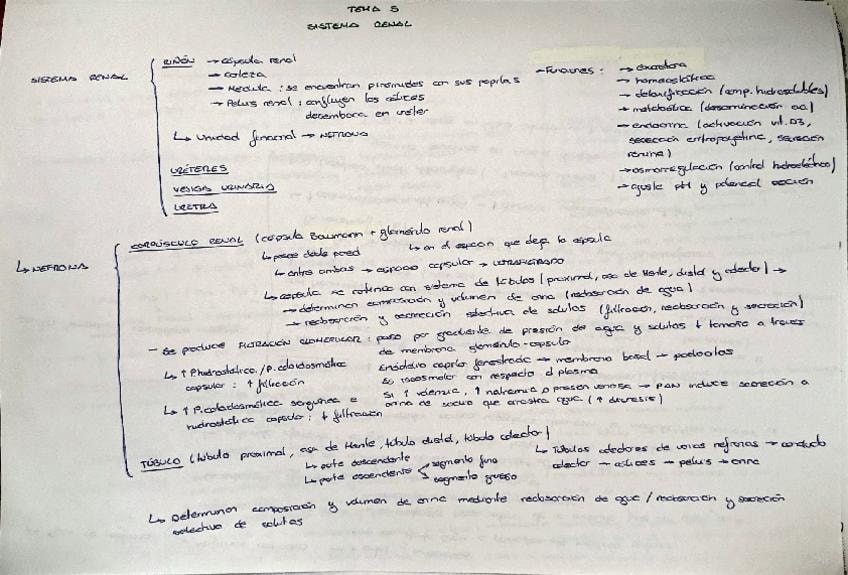 TEMA 5
SISTEMA RENAL
SISTEMA RENAL
RIÑÓN → cápsula renal
→ corteza
→ Médula : se encuentran pirámides con sus papilas
→ Pelvis renal : confluyen los cálices
desemboca en uréter
↳ Unidad funcional → NEFRONA
URÉTERES
VEJIGA URINARIA
URETRA
- Funciones : → excretora
→ homeostática
→ detoxificación (comp. hidrosolubles)
→ metabólica (desaminación aa)
→ endocrina (activación vit. D3,
secreción eritropoyetina, secreción
renina)
→ osmorregulación (control hidroelectrico)
→ ajuste pH y potencial acción
↳ NEFRONA
CORPÚSCULO RENAL (cápsula Bowmann + glomérulo renal)
↳ posee doble pared
↳ en el espacio que deja la cápsula
↳ entre ambas → espacio capsular → ULTRAFILTRADO
↳ cápsula se continúa con sistema de túbulos (proximal, asa de Henle, distal y colector) →
→ determinan composición y volumen de orina (reabsorción de agua)
→ reabsorción y secreción selectiva de solutos (filtración, reabsorción y secreción)
- Se produce FILTRACIÓN GLOMERULAR : paso por gradiente de presión de agua y solutos ↓ tamaño a través
de membrana glomérulo-capsula
↳ ↑ P hidrostática / P. coloidosmótica
capsular : ↑ filtración
Endotelio capilar fenestrado → membrana basal → podocitos
Es isoosmolar con respecto al plasma
Si ↑ volemia, ↑ natremia o presión venosa → PAN induce secreción a
orina de sodio que arrastra agua (↑ diuresis)
↳ ↑ P. coloidosmótica sanguínea e
hidrostática capsular : ↓ filtración
TÚBULO (túbulo proximal, asa de Henle, túbulo distal, túbulo colector)
↳ parte descendente
↳ parte ascendente segmento fino
segmento grueso
↳ Túbulos colectores de varias nefronas → conducto
colector → cálices → pelvis → orina
↳ Determinan composición y volumen de orina mediante reabsorción de agua / reabsorción y secreción
selectiva de solutos